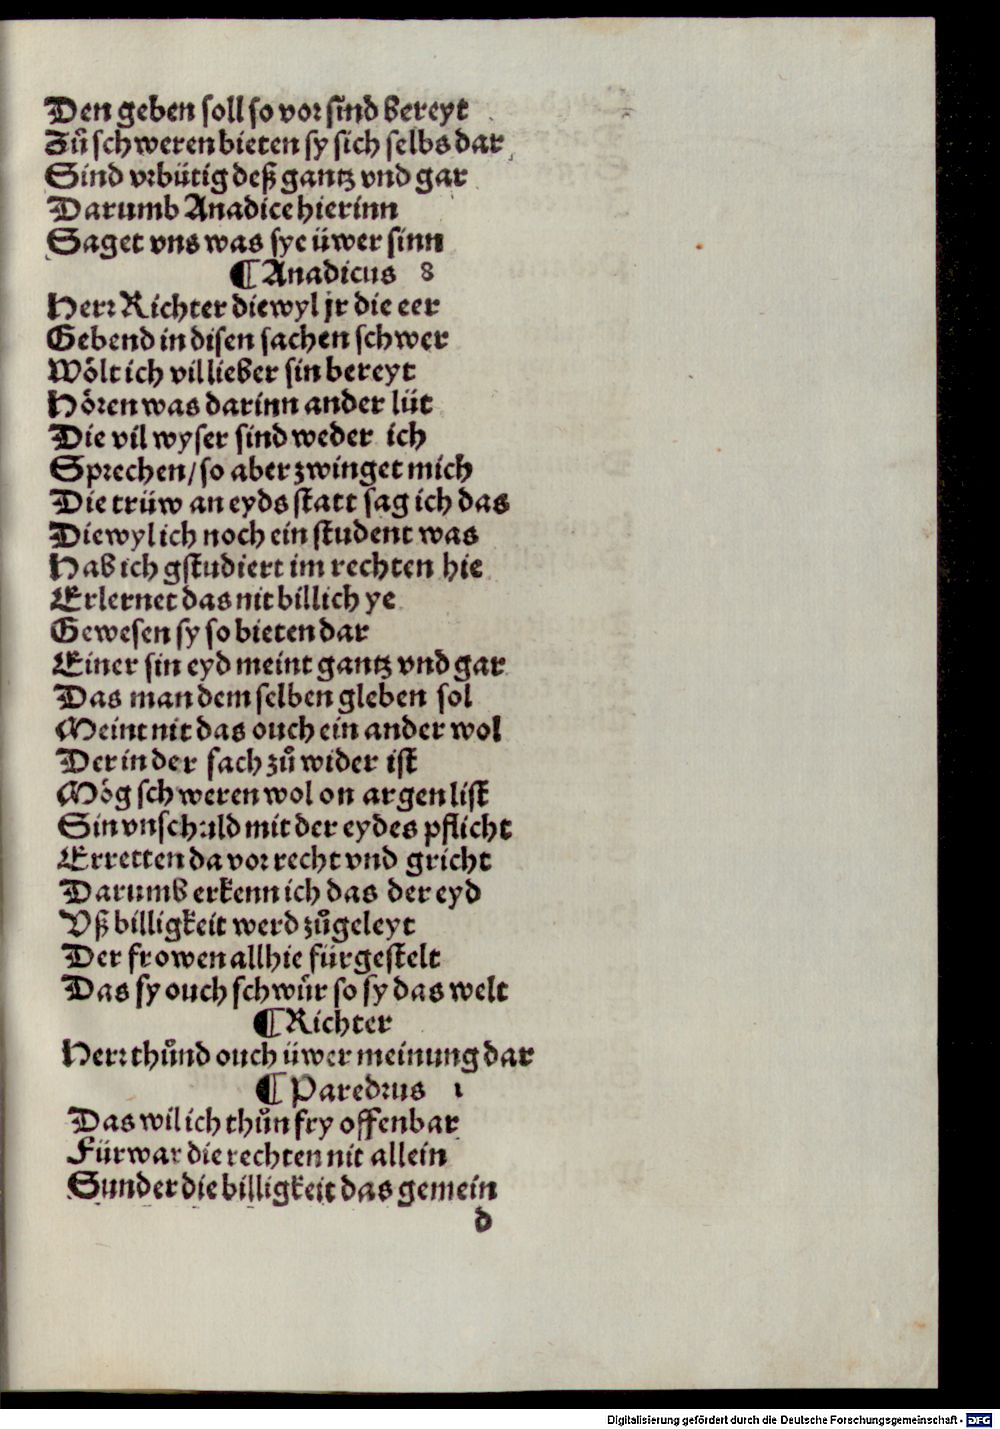 Den geben soll so vor sind bereyt
Zů schweren bieten sy sich selbs dar
Sind vrbütig deß gantz vnd gar
Darumb Anadice hierinn
Saget vns was sye üwer sinn
¶ Anadicus 8
Herr Richter diewyl jr die eer
Gebend in disen sachen schwer
Wölt ich vil lieber sin bereyt
Hören was darinn ander lüt
Die vil wyser sind weder ich
Sprechen / so aber zwinget mich
Die trüw an eyds statt sag ich das
Diewyl ich noch ein student was
Hab ich gstudiert im rechten hie
Erlernet das nit billich ye
Gewesen sy so bieten dar
Einer sin eyd meint gantz vnd gar
Das man dem selben gleben sol
Meint nit das ouch ein ander wol
Der in der sach zů wider ist
Mög schweren wol on argen list
Sin vnschuld mit der eydes pflicht
Erretten da vor recht vnd gricht
Darumb erkenn ich das der eyd
Vß billigkeit werd zůgeleyt
Der frowen allhie fürgestelt
Das sy ouch schwůr so sy das welt
¶ Richter
Herr thůnd ouch üwer meinung dar
¶ Paredrus 1
Das wil ich thůn fry offenbar
Fürwar die rechten nit allein
Sunder die billigkeit das gemein
d
Digitalisierung gefördert durch die Deutsche Forschungsgemeinschaft - DFG